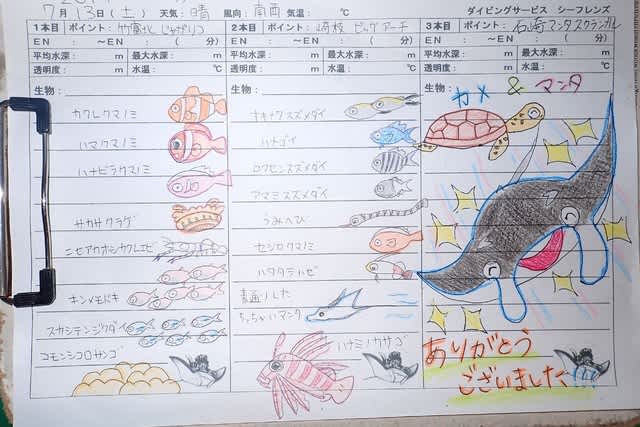 7月13日(土) 天気:晴 風向:南西 気温: ℃ ダイビングサービス シーフレンズ
1本目 ポイント:竹富北 じゃがりこ
EN : ~EN : ( 分)
平均水深: m 最大水深: m
透明度: m 水温: ℃
生物:
カクレクマノミ
ハマクマノミ
ハナビラクマノミ
サカサクラゲ
ニセアカホシカクレエビ
キンメモドキ
スカシテンジクダイ
コモンシコロサンゴ
2本目 ポイント:崎枝 ビッグアーチ
EN : ~EN : ( 分)
平均水深: m 最大水深: m
透明度: m 水温: ℃
生物:
オキナワスズメダイ
ハナゴイ
ロクセンスズメダイ
アマミスズメダイ
うみへび
セジロクマノミ
ハタタテハゼ
素通りした
ちっちゃいマンタ
ハナミノカサゴ
3本目 ポイント:石崎マンタスクランブル
EN : ~EN : ( 分)
平均水深: m 最大水深: m
透明度: m 水温: ℃
生物:
カメ & マンタ
ありがとう
ございました